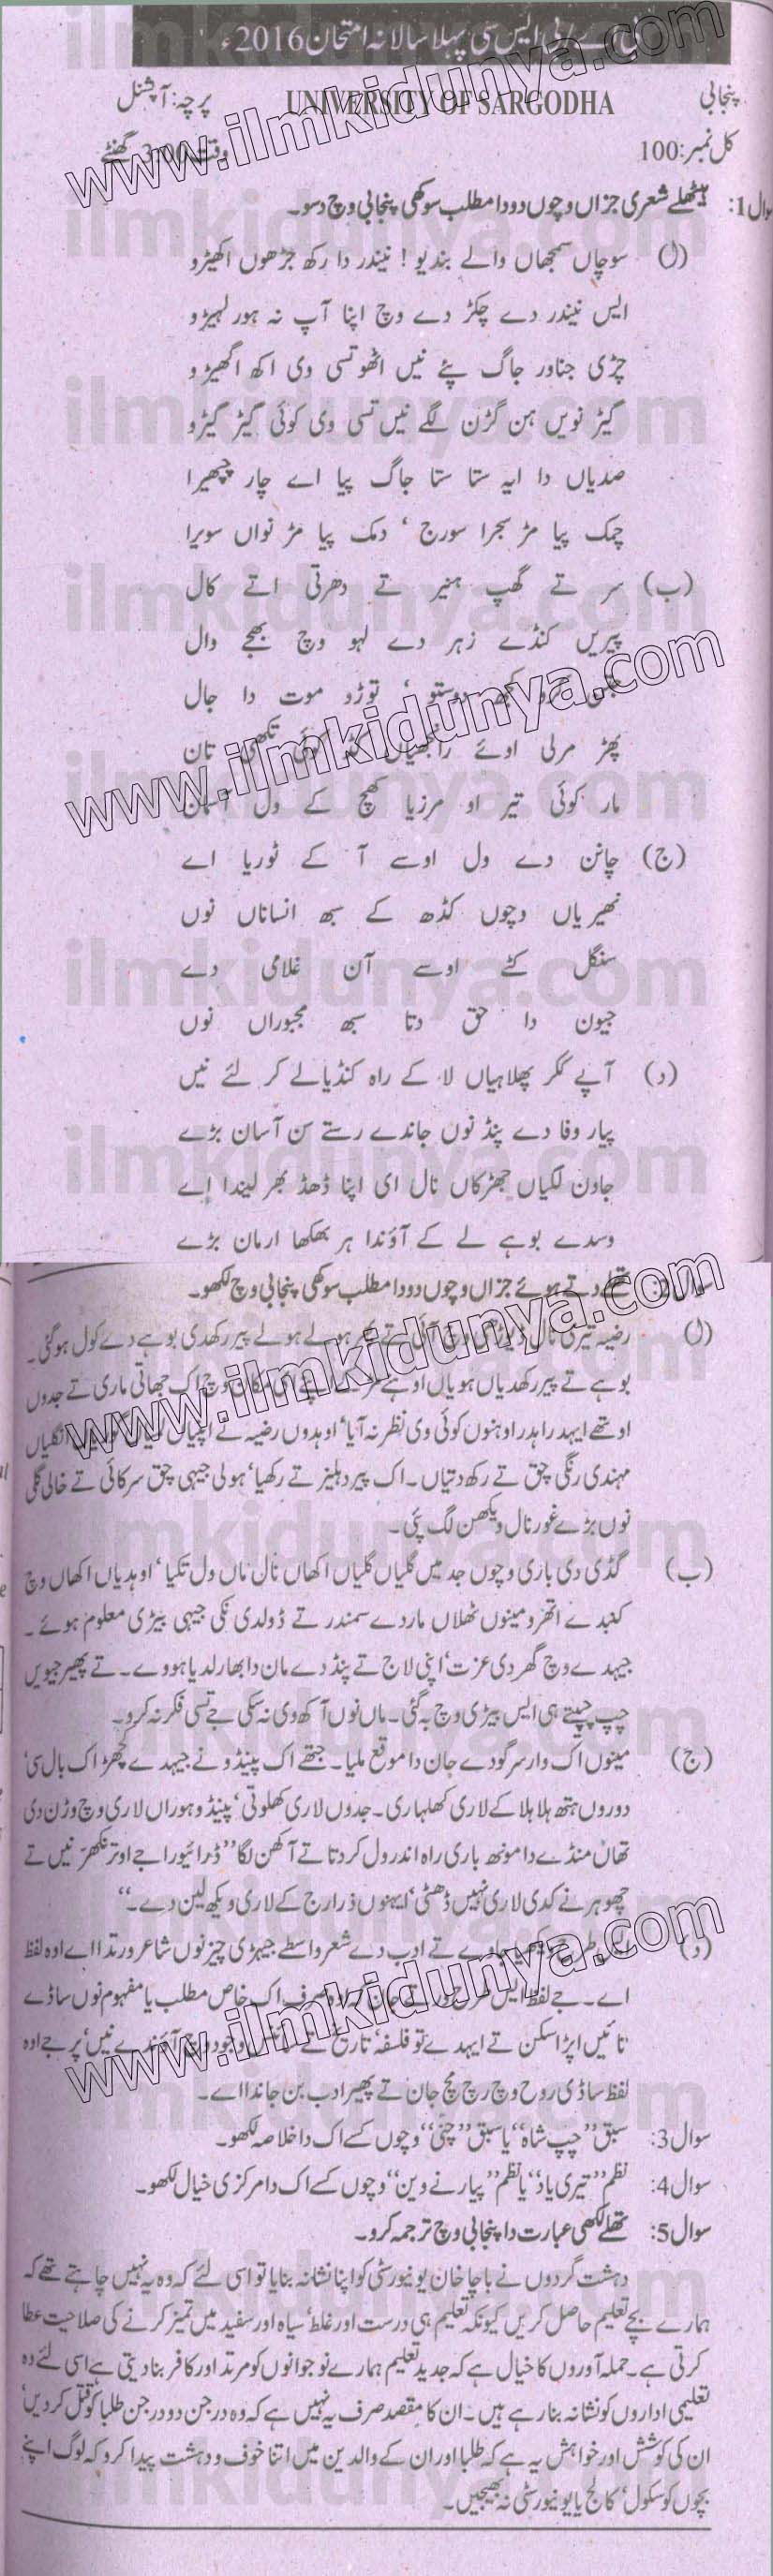 بی اے/بی ایس سی پہلا سالانہ امتحان 2016ء
پنجابی UNIVERSITY OF SARGODHA پرچہ: آپشنل
کل نمبر: 100 وقت: 3:00 گھنٹے
سوال 1: ہیٹھلے شعری جزاں وچوں دو دا مطلب سوکھی پنجابی وچ دسو۔
(ا) سوچاں سمجھاں والے بندیو! نیندر دا رکھ جڑھوں اکھیڑو
ایس نیندر دے چکڑ دے وچ اپنا آپ نہ ہور لہیڑو
چڑی جناور جاگ پئے نیں اٹھو تسی وی اکھ اگھیڑو
گیڑ نویں ہن گڑن لگے نیں تسی وی کوئی گیڑ گیڑو
صدیاں دا ایہ ستا ستا جاگ پیا اے چار چھیرا
چمک پیا مڑ سجرا سورج ' دمک پیا مڑ نواں سویرا
(ب) سر تے گھپ ہنیر تے دھرتی اتے کال
پیریں کنڈے زہر دے لہو وچ بھجے وال
جتن کرو کجھ دوستو ' توڑو موت دا جال
پھڑ مرلی اوئے رانجھیا کڈ کوئی تکھی تان
مار کوئی تیر او مرزیا کھچ کے ول آسمان
(ج) چانن دے ول اوسے آ کے ٹوریا اے
نھیریاں وچوں کڈھ کے سبھ انساناں نوں
سنگل کٹے اوسے آن غلامی دے
جیون دا حق دتا سبھ مجبوراں نوں
(د) آپے ککر پھلاہیاں لا کے راہ کنڈیالے کر لئے نیں
پیار وفا دے پنڈ نوں جاندے رستے سن آسان بڑے
جاون لگیاں جھڑکاں نال ای اپنا ڈھڈ بھر لیندا اے
وسدے بوہے لے کے آؤندا ہر بھکھا ارمان بڑے
سوال 2: تھلے دتے ہوئے جزاں وچوں دو دا مطلب سوکھی پنجابی وچ لکھو۔
(ا) رضیہ تیزی نال ڈیوڑھی وچ آئی تے فیر ہولے ہولے پیر رکھدی بوہے دے کول ہو گئی۔
بوہے تے پیر رکھدیاں ہویاں اوہنے مڑ کے اپنے ای مکان وچ اک جھاتی ماری تے جدوں
اوتھے ایہدر اہدر اوہنوں کوئی وی نظر نہ آیا' اوہدوں رضیہ نے اپنیاں انگلیاں
مہندی رنگی چق تے رکھ دتیاں۔ اک پیر دہلیز تے رکھیا' ہولی جیہی چق سرکائی تے خالی گلی
نوں بڑے غور نال ویکھن لگ پئی۔
(ب) گڈی دی باری وچوں جد میں گلیاں گلیاں اکھاں نال ماں ول تکیا' اوہدیاں اکھاں وچ
کنبدے اتھرو مینوں ٹھلاں ماردے سمندر تے ڈولدی نکی جیہی بیڑی معلوم ہوئے۔
جیہدے وچ گھر دی عزت' اپنی لاج تے پنڈ دے مان دا بھار لدیا ہووے۔ تے پھیر جیویں
چپ چپیتے ہی ایس بیڑی وچ بہ گئی۔ ماں نوں آکھ وی نہ سکی جے تسی فکر نہ کرو۔
(ج) مینوں اک وار سرگودے جان دا موقع ملیا۔ جتھے اک پینڈو نے جیہدے کچھڑ اک بال سی'
دوروں ہتھ ہلا ہلا کے لاری کھلہاری۔ جدوں لاری کھلوتی' پینڈو ہوراں لاری وچ وڑن دی
تھاں منڈے دا مونہہ باری راہ اندر ول کر دتا تے آکھن لگا "ڈرائیور اجے اوتر نکھتر نیں تے
چھوہر نے کدی لاری نہیں ڈٹھی' ایہنوں ذرا رج کے لاری ویکھ لین دے۔"
(د) ادب دے شعر واسطے جیہڑی چیز نوں شاعر ورتدا اے اوہ لفظ
اے۔ جے لفظ ایس طرح ورتے جان کہ اوہ صرف اک خاص مطلب یا مفہوم نوں ساڈے
تائیں اپڑا سکن تے ایہدے تو فلسفہ' تاریخ تے سائنس وجود وچ آؤندے نیں' پر جے اوہ
لفظ ساڈی روح وچ رچ مچ جان تے پھیر ادب بن جاندا اے۔
سوال 3: سبق "چپ شاہ" یا سبق "چنی" وچوں کسے اک دا خلاصہ لکھو۔
سوال 4: نظم "تیری یاد" یا نظم "پیار نے وین" وچوں کسے اک دا مرکزی خیال لکھو۔
سوال 5: تھلے لکھی عبارت دا پنجابی وچ ترجمہ کرو۔
دہشت گردوں نے باچا خان یونیورسٹی کو اپنا نشانہ بنایا تو اسی لئے کہ وہ یہ نہیں چاہتے تھے کہ
ہمارے بچے تعلیم حاصل کریں کیونکہ تعلیم ہی درست اور غلط' سیاہ اور سفید میں تمیز کرنے کی صلاحیت عطا
کرتی ہے۔ حملہ آوروں کا خیال ہے کہ جدید تعلیم ہمارے نوجوانوں کو مرتد اور کافر بنا دیتی ہے اسی لئے وہ
تعلیمی اداروں کو نشانہ بنا رہے ہیں۔ ان کا مقصد صرف یہ نہیں ہے کہ وہ درجن دو درجن طلبا کو قتل کر دیں'
ان کی کوشش اور خواہش یہ ہے کہ طلبا اور ان کے والدین میں اتنا خوف و دہشت پیدا کرو کہ لوگ اپنے
بچوں کو سکول' کالج یا یونیورسٹی نہ بھیجیں۔
www.ilmkidunya.com
ilmkidunya.com